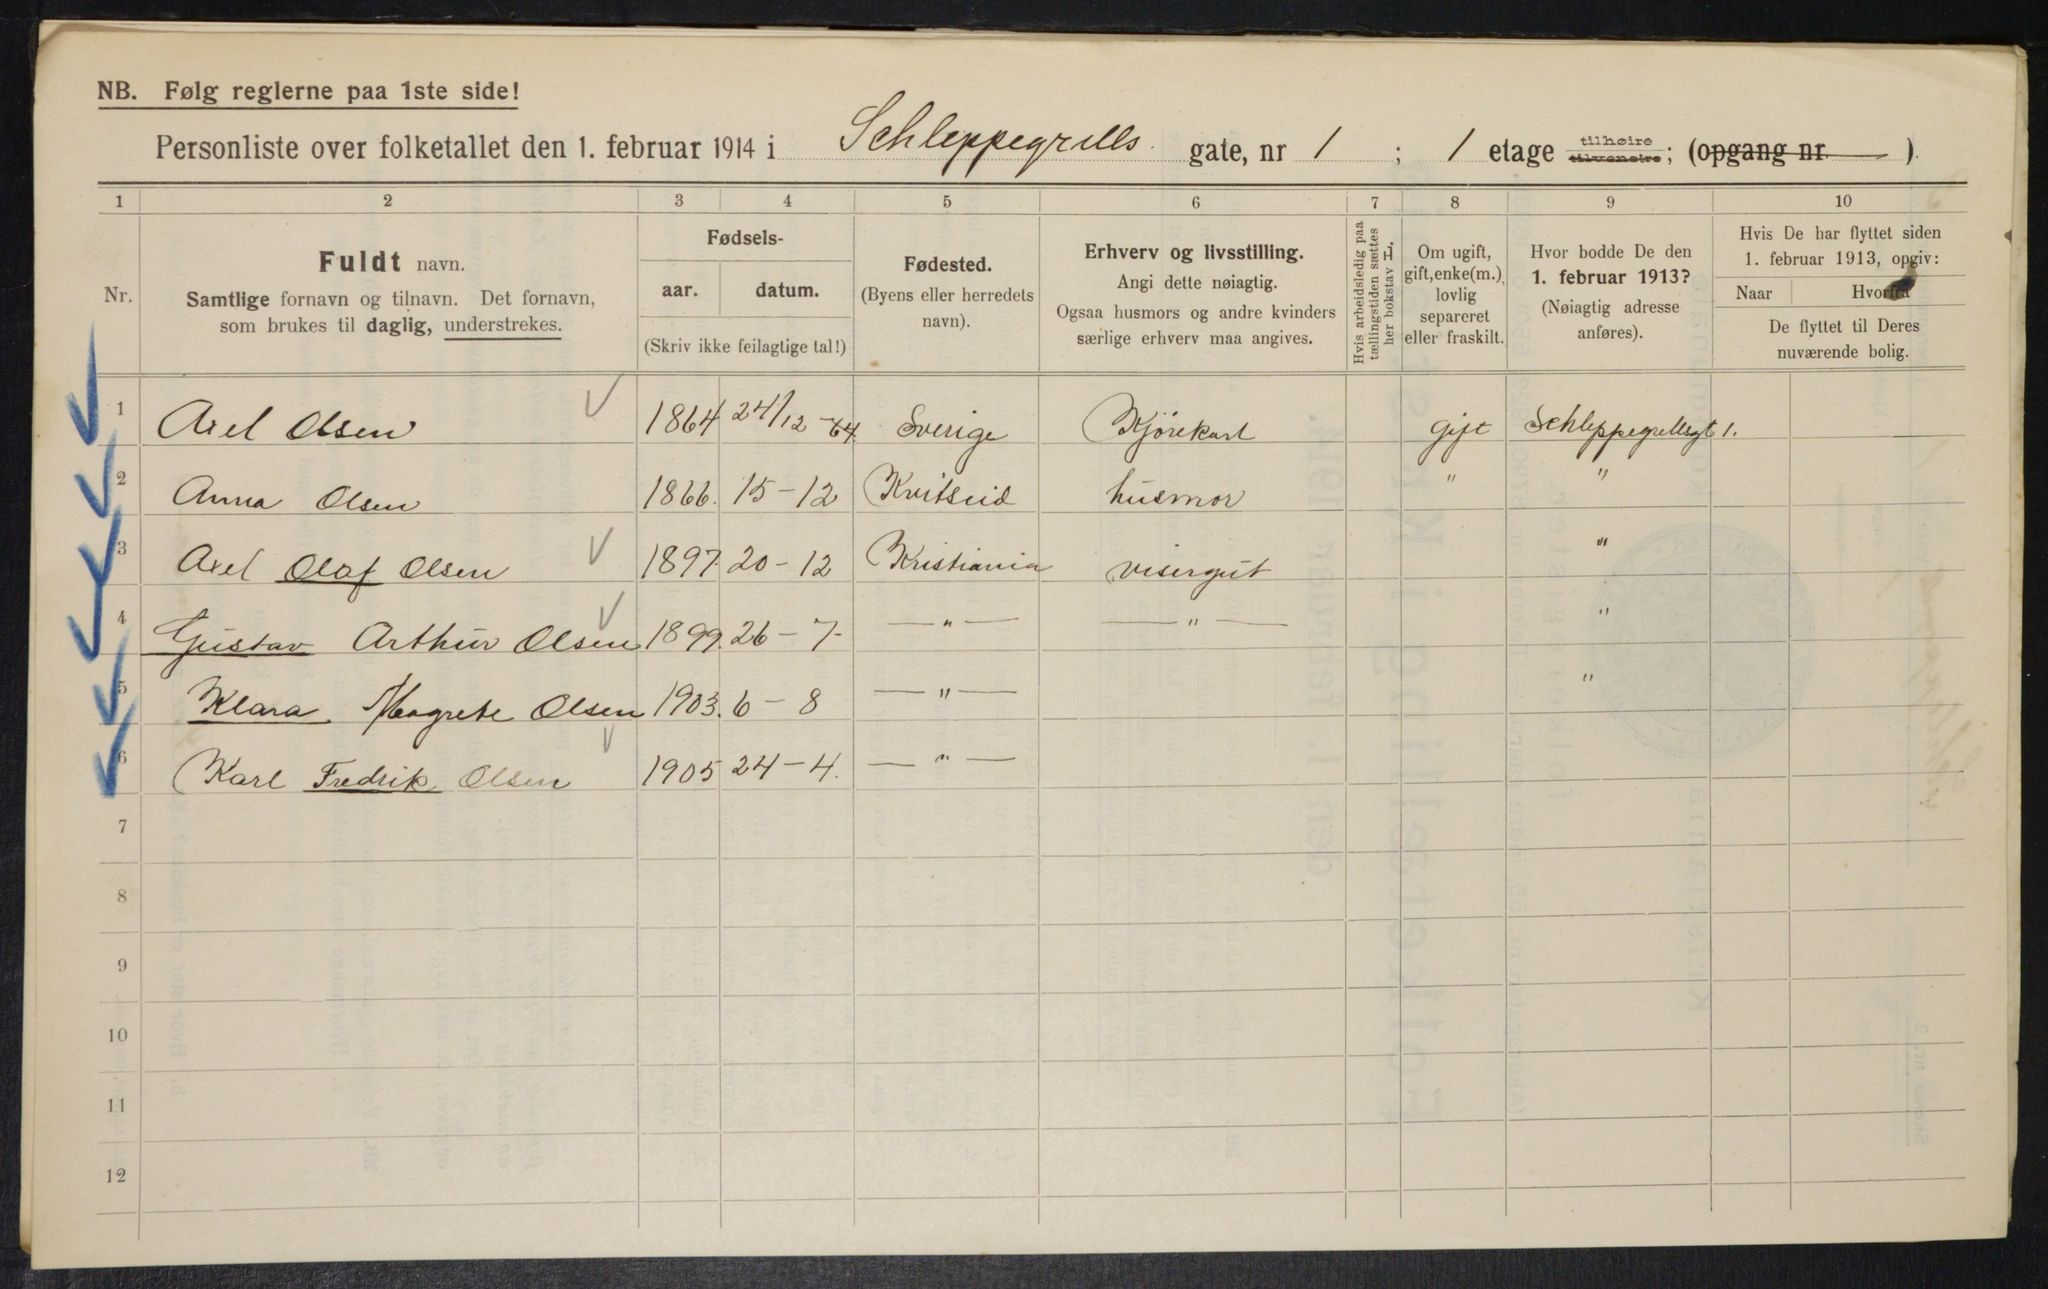 NB. Følg reglerne paa 1ste side!
Personliste over folketallet den 1. februar 1914 i Schleppegrells gate, nr 1 ; 1 etage tilhøire tilvenstre; (opgang nr. )
1 2 3 4 5 6 7 8 9 10
Nr.
Fuldt navn.
Samtlige fornavn og tilnavn. Det fornavn,
som brukes til daglig, understrekes.
Fødsels-
aar. datum.
(Skriv ikke feilagtige tal!)
Fødested.
(Byens eller herredets
navn).
Erhverv og livsstilling.
Angi dette nøiagtig.
Ogsaa husmors og andre kvinders
særlige erhverv maa angives.
Hvis arbeidsledig paa
tællingstiden sættes
her bokstav L.
Om ugift,
gift, enke(m.),
lovlig
separeret
eller fraskilt.
Hvor bodde De den
1. februar 1913?
(Nøiagtig adresse
anføres).
Hvis De har flyttet siden
1. februar 1913, opgiv:
Naar Hvorfra
De flyttet til Deres
nuværende bolig.
1 Axel Olsen 1864 24/12-64 Sverige Kjørekarl gift Schleppegrellsgt 1.
2 Anna Olsen 1866. 15-12 Kvitseid husmor " "
3 Axel Olaf Olsen 1897. 20-12 Kristiania visergut "
4 Gustav Arthur Olsen 1899. 26-7- —"— —"— "
5 Klara Magrete Olsen 1903. 6-8 —"— "
6 Karl Fredrik Olsen 1905 24-4. —"—
7
8
9
10
11
12